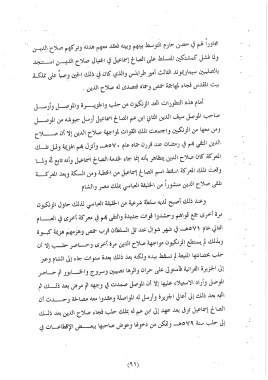 مجاوراً لهم في حصن حارم التوسط بينهم وبينه لعقد معهم هدنة وتركهم صلاح الدين
ولما فشل كمشتكين المتسلط على الصالح إسماعيل في اغتيال صلاح الدين استنجد
بالصليبيين سيما ريموند الثالث أمير طرابلس والذي كان في ذلك الحين وصياً على مملكة
بيت المقدس فجاء لمهاجمة حمص وحماه فتصدى له صلاح الدين.
أمام هذه التطورات اتحد الزنكيون من حلب والجزيرة والموصل وأرسل
صاحب الموصل سيف الدين غازي ابن عم الصالح إسماعيل أرسل جيوشه من الموصل
ومن معها من الزنكيين واجتمعت تلك القوات لمواجهة صلاح الدين إلا أن صلاح
الدين التقى بهم في رمضان عند قرون حماه عام ٥٧٠هـ وأنزل بهم هزيمة وقبل تلك
المعركة كان صلاح الدين يتظاهر بأنه إنما جاء لخدمة الصالح إسماعيل وأنه تابع له ولما
وقعت تلك المعركة اسقط اسم الصالح إسماعيل من الخطبة ومن السكة وبعد المعركة
تلقى صلاح الدين منشوراً من الخليفة العباسي بملك مصر والشام
وعند ذلك أصبح لديه سلطة شرعية من الخليفة العباسي لذلك حاول الزنكيون
مرة أخرى جمع قواهم وحشدوا قوات جديدة والتقى بهم في معركة أخرى في العام
التالي عام ٥٧١هـ في شهر شوال عند تل السلطان قرب حمص وهزمهم هزيمة كبيرة
وبذلك لم يستطع الزنكيون مواجهة صلاح الدين مرة أخرى وحاصر حلب إلا أن
حلب بحصانتها المنيعة لم تسقط بيده ولكنه بعد ذلك بعدة سنوات جاء إلى الشام وعبر
إلى الجزيرة الفراتية فأستولى على حران والرها نصيبين وسروج والخابور ثم حاصر
الموصل وأراد الاستيلاء عليها إلا أن الموصل صمدت في وجهه ثم مرض بعد ذلك ثم
اتجه بعد ذلك إلى أعالي الجزيرة وأرسل له المواصلة وعقدوا معه مصالحة وحدث أن
الصالح إسماعيل توفى بعد عهد إلى ابن عم له بملك حلب فجاء صلاح الدين بعد ذلك
إلى حلب سنة ٥٧٩هـ وتمكن من دخولها وعوض صاحبها ببعض الإقطاعات في
(٩٦)